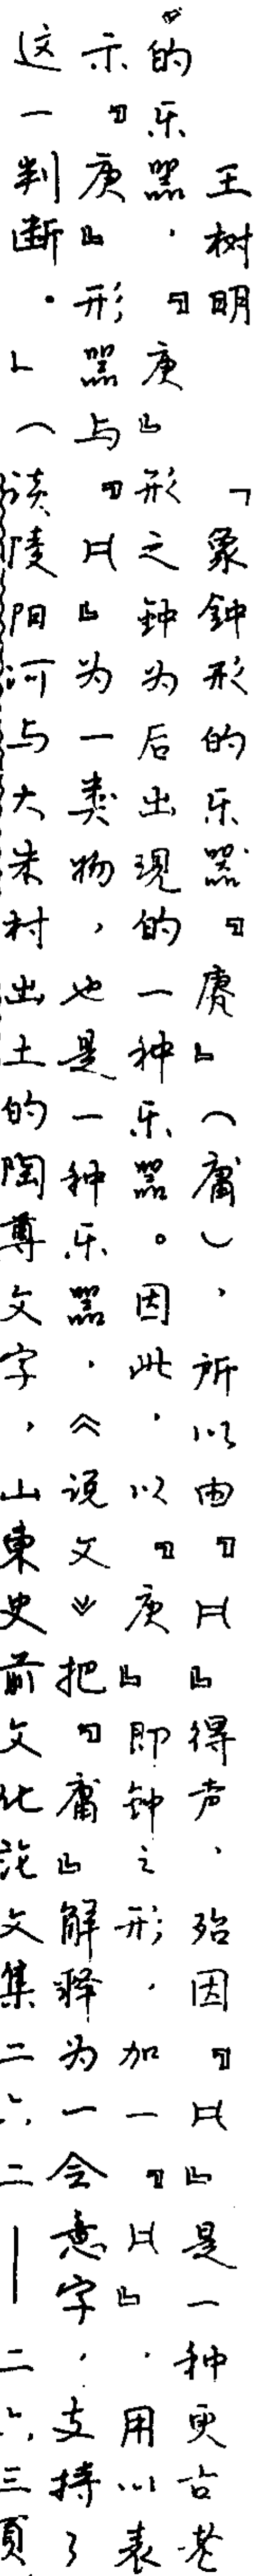 王树明　「象钟形的乐器『𢈻』（庸），所以由『𠔼』得声，殆因『𠔼』是一种更古老
的乐器，『庚』形之钟为后出现的一种乐器。因此，以『庚』即钟之形，加一『𠔼』，用以表
示『庚』形器与『𠔼』为一类物，也是一种乐器，《说文》把『庸』解释为一会意字，支持了
这一判断。」（谈陵阳河与大朱村出土的陶尊文字，山东史前文化论文集二六二—二六三頁